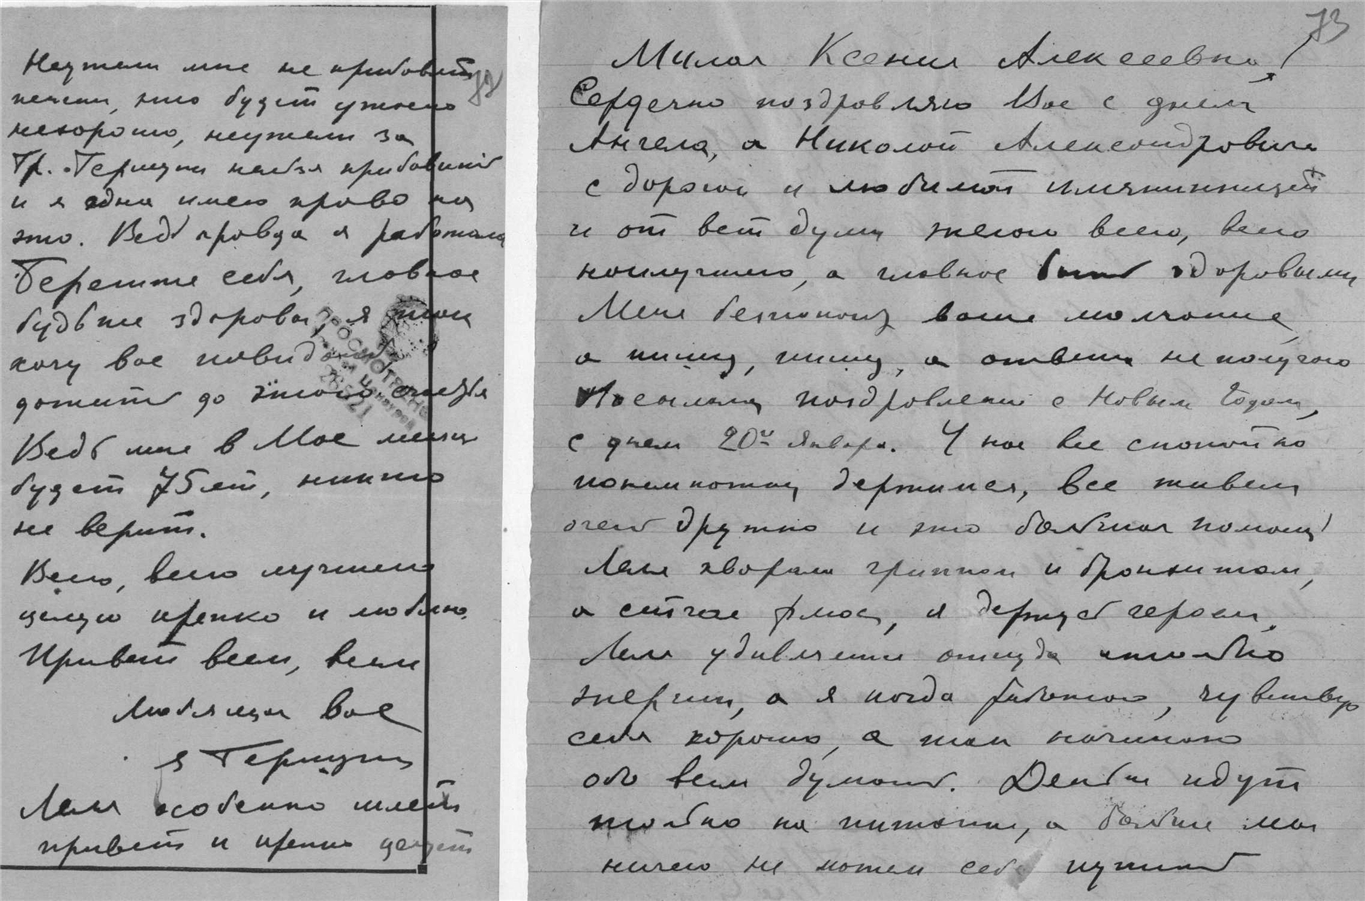 72
Неужели мне не прибавят
пенсии, это будет ужасно
нехорошо, неужели за
Гр. Гермуш нельзя прибавить
и я одна имею право на
это. Ведь правда я работала
Берегите себя, главное
будьте здоровы, я так
хочу вас повидать
дожить до этого счастья
Ведь мне в Мае месяце
будет 75 лет, никто
не верит.
Всего, всего лучшего
целую крепко и люблю.
Привет всем, всем
Любящая вас
Леля особенно шлет
привет и крепко целует
ПРОСМОТРЕНО
73
Милая Ксения Алексеевна!
Сердечно поздравляю Вас с днем
Ангела, а Николай Александровича
с дорогой и любимой именинницей
и от всей души желаю всего, всего
наилучшего, а главное быть здоровыми
Меня беспокоит ваше молчание,
а пишу, пишу, а ответа не получаю
Посылала поздравления с Новым Годом,
с днем 20го Января. У нас все спокойно
понемножку держимся, все живем
очень дружно и это большая помощь!
Леля хворала гриппом и бронхитом,
а сейчас я держусь героем.
Леля удивление откуда столько
энергии, а я когда работаю, чувствую
себя хорошо, а так начинаю
обо всем думать. Деньги идут
только на питание, а больше мы
ничего не можем себе купить